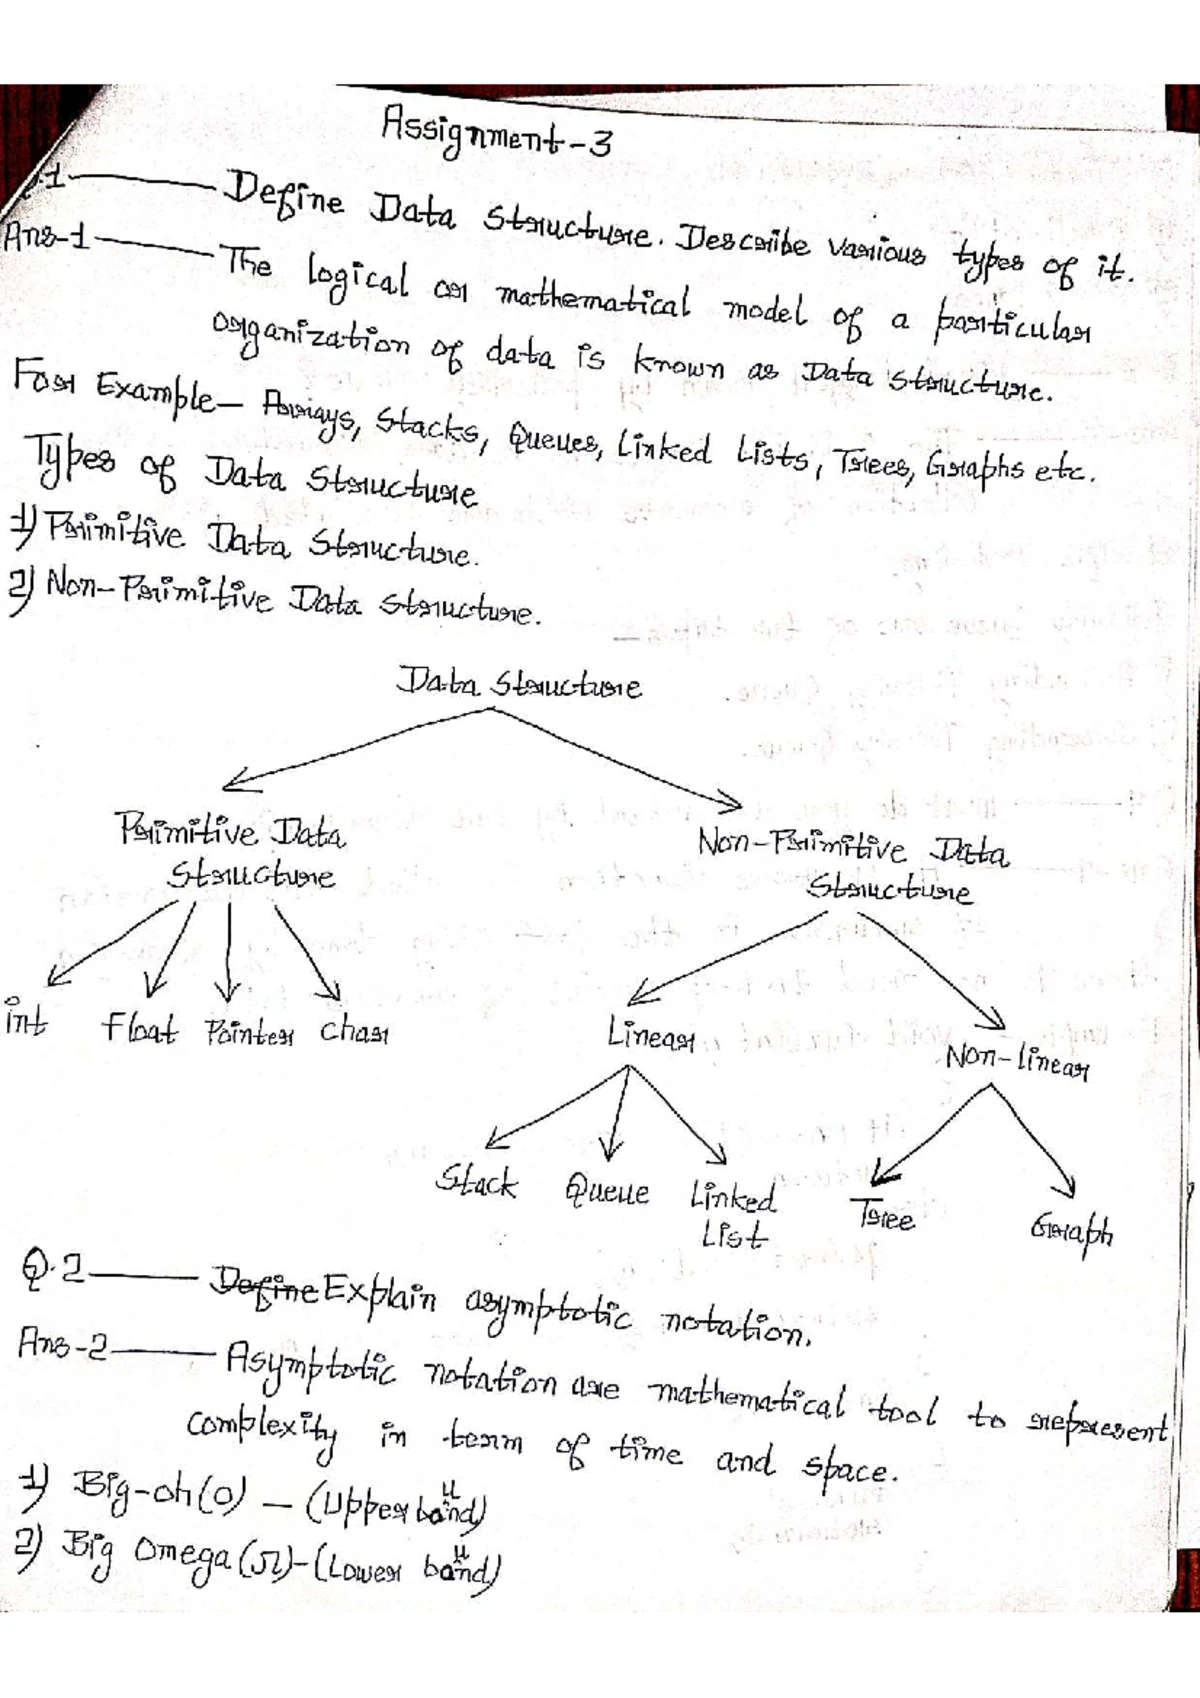 Assignment-3
.1 —— Define Data Structure. Describe various types of it.
Ans-1 —— The logical or mathematical model of a particular
organization of data is known as Data Structure.
For Example— Arrays, Stacks, Queues, Linked Lists, Trees, Graphs etc.
Types of Data Structure
1) Primitive Data Structure.
2) Non-Primitive Data Structure.
Data Structure
Primitive Data
Structure
Non-Primitive Data
Structure
int Float Pointer char
Linear
Non-linear
Stack Queue Linked
List
Tree
Graph
Q.2 —— Define Explain asymptotic notation.
Ans-2 —— Asymptotic notation are mathematical tool to represent
complexity in term of time and space.
1) Big-oh(O) — (Upper bound)
2) Big Omega(Ω)-(Lower bound)